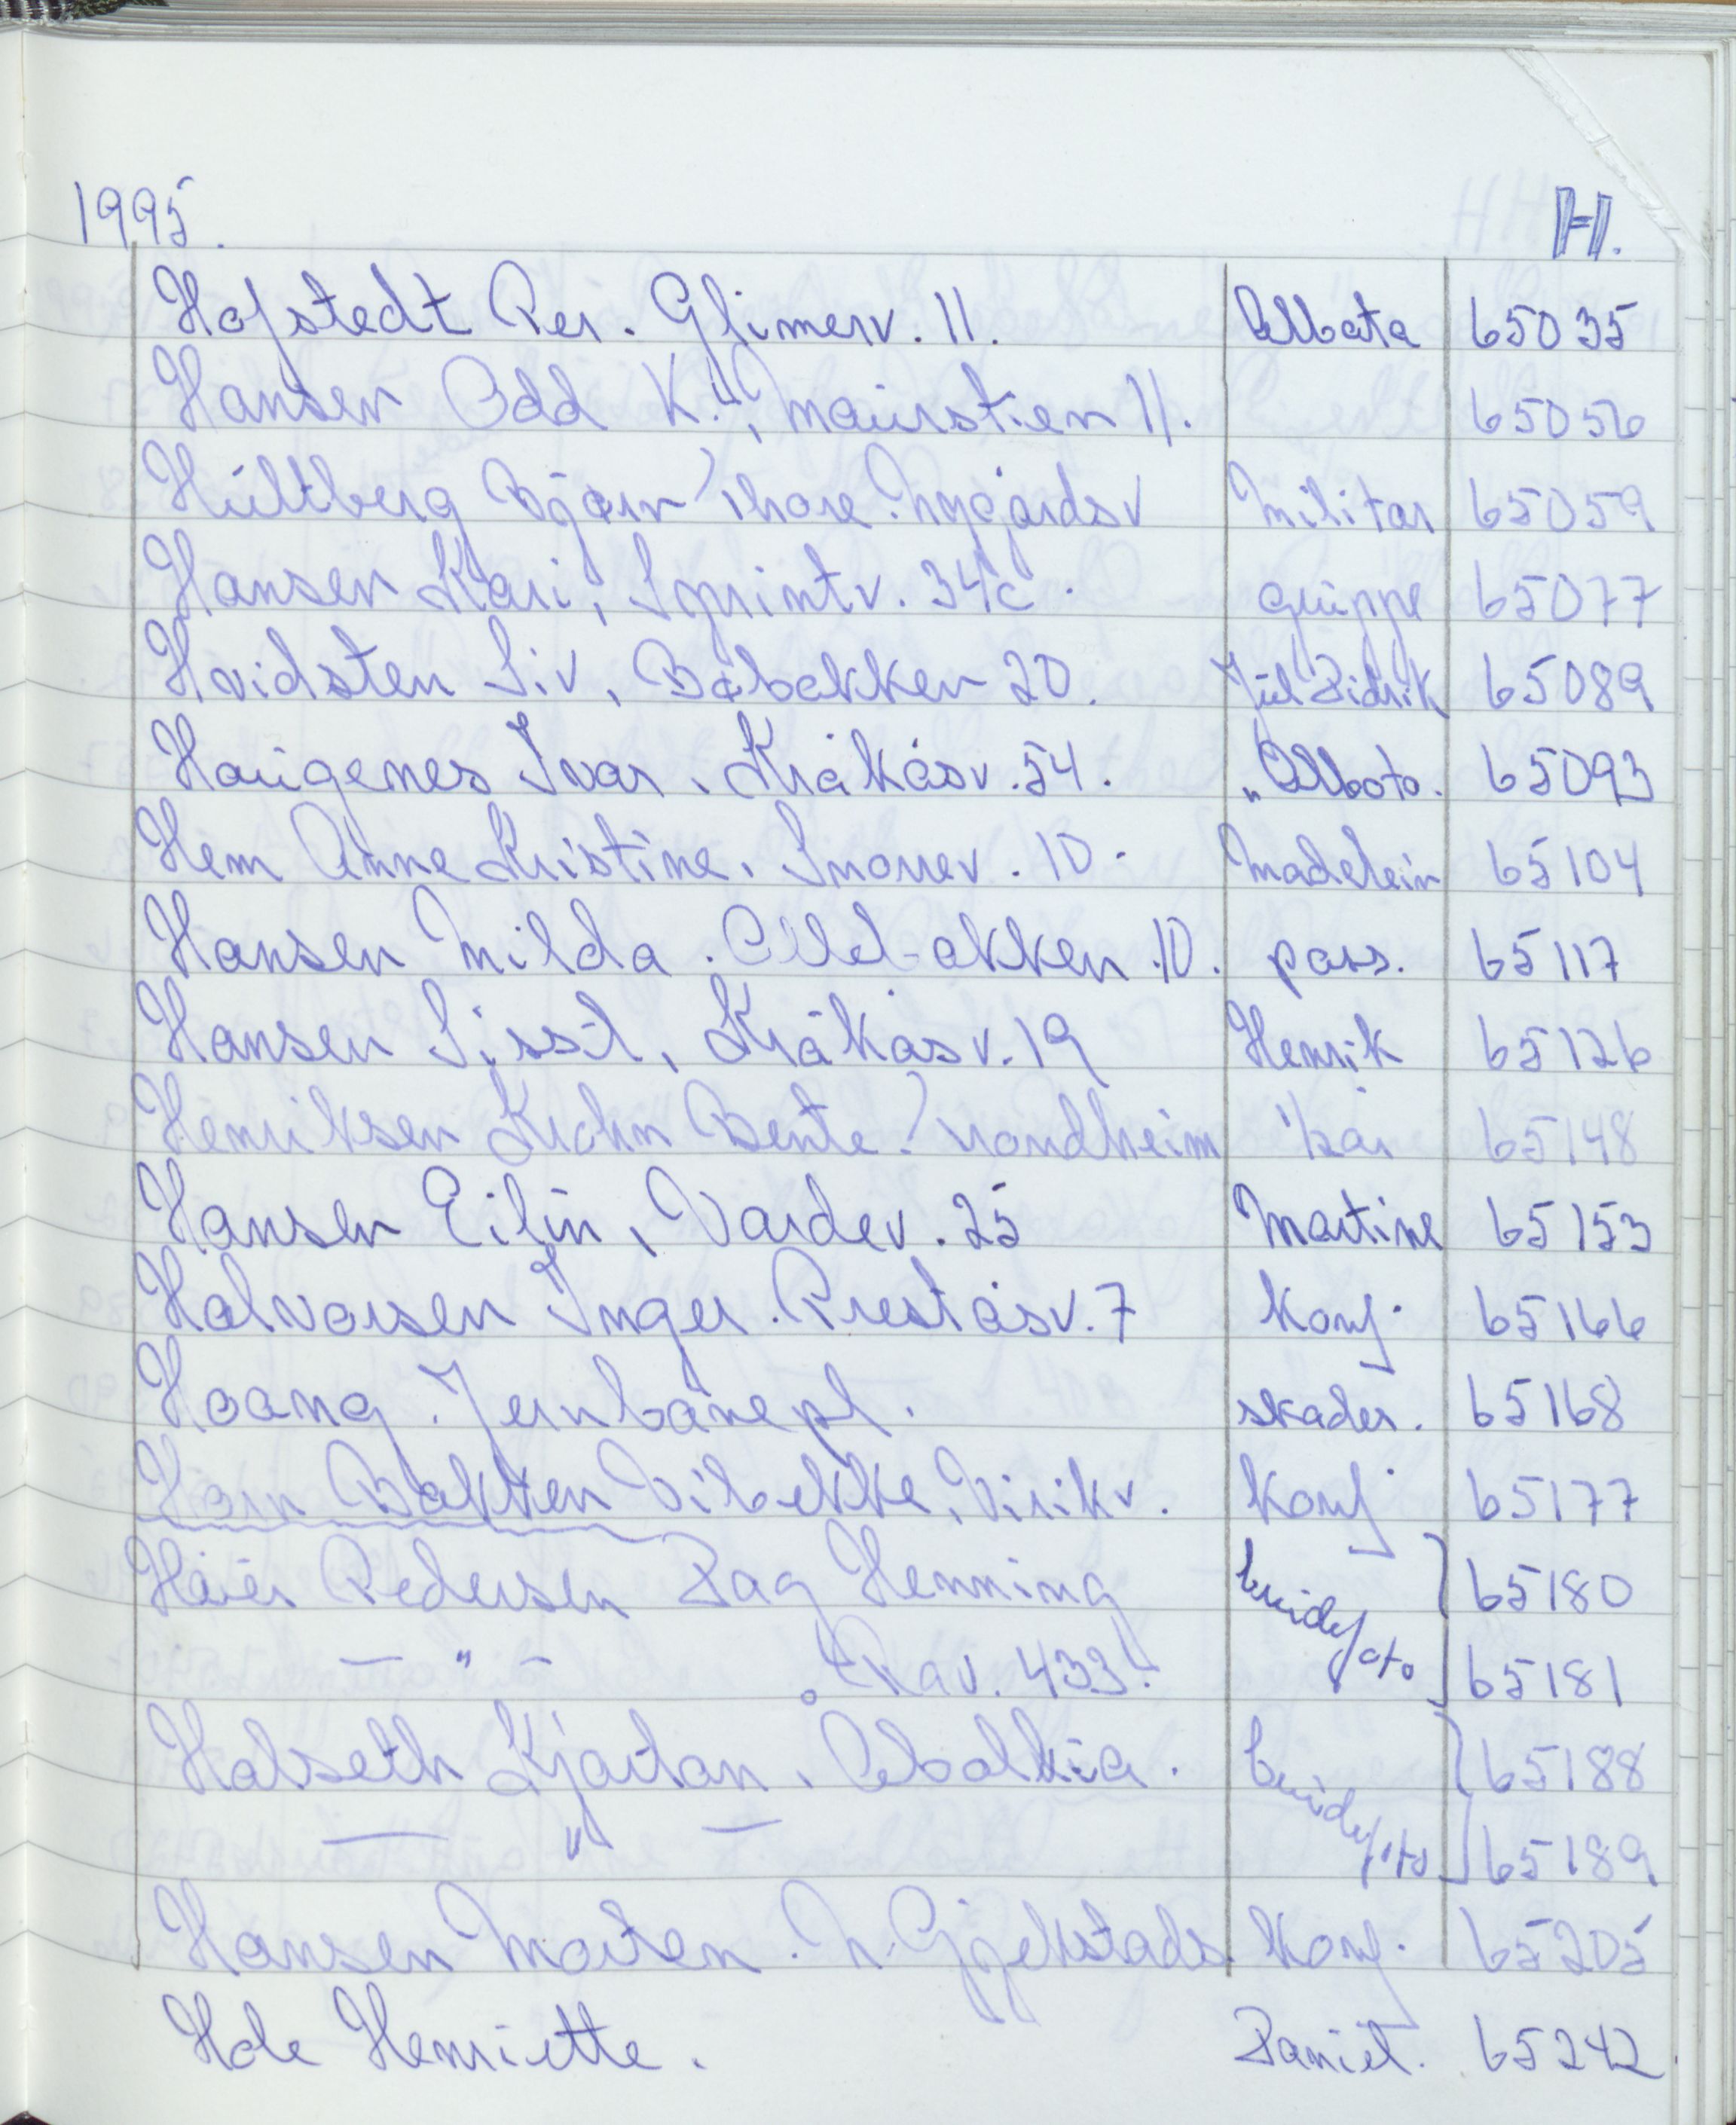 1995. H.
Hofstedt Per. Glimerv. 11. 65035
Hansen Odd K., Maurstien 11. 65056
Hultberg Bjørn Thore. Nygårdsv Militær 65059
Hansen Kari, Sprintv. 34c. gruppe 65077
Hvidsten Siv, Bøbakken 20. Jul Didrik 65089
Haugenes Ivar. Kråkåsv. 54. 65093
Hem Anne Kristine. Snorrev. 10. Madelein 65104
Hansen Milda. 10. pass. 65117
Hansen Sissel, Kråkåsv. 19 Henrik 65126
Henriksen Krohn Bente. Trondheim 65148
Hansen Eilin, Vardev. 25 Martine 65153
Halvorsen Inger. Preståsv. 7 Konf. 65166
Hoang. Jernbanepl. skader. 65168
Horn Bakken Vibekke, Virikv. Konf 65177
Høier Pedersen Dag Henning brudefoto 65180
— " — Rav. 433. 65181
Halseth Kjartan. brudefoto 65188
— " — 65189
Hansen Morten. N. Gjekstadv. Konf. 65205
Hole Henriette. Daniel. 65242.